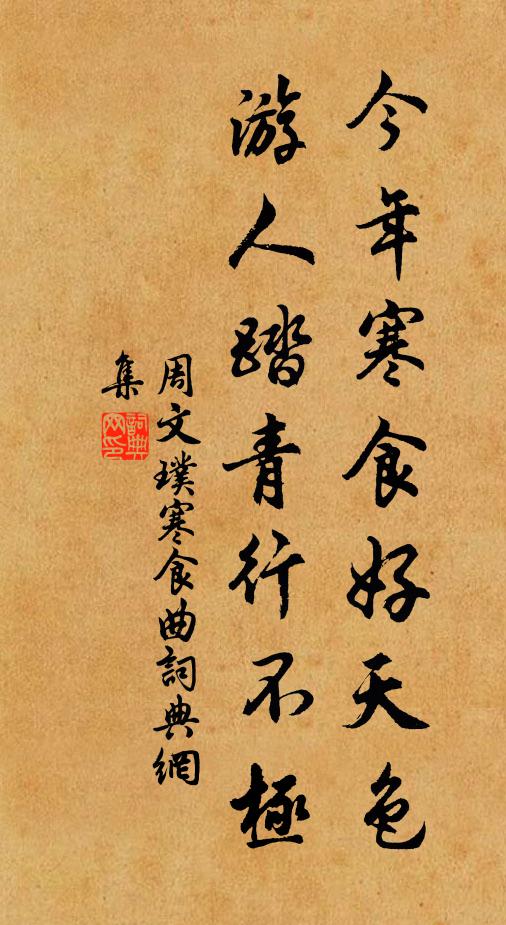 今年寒食好天色
游人踏青行不極
周文璞寒食曲詞典網
集
詞典网印